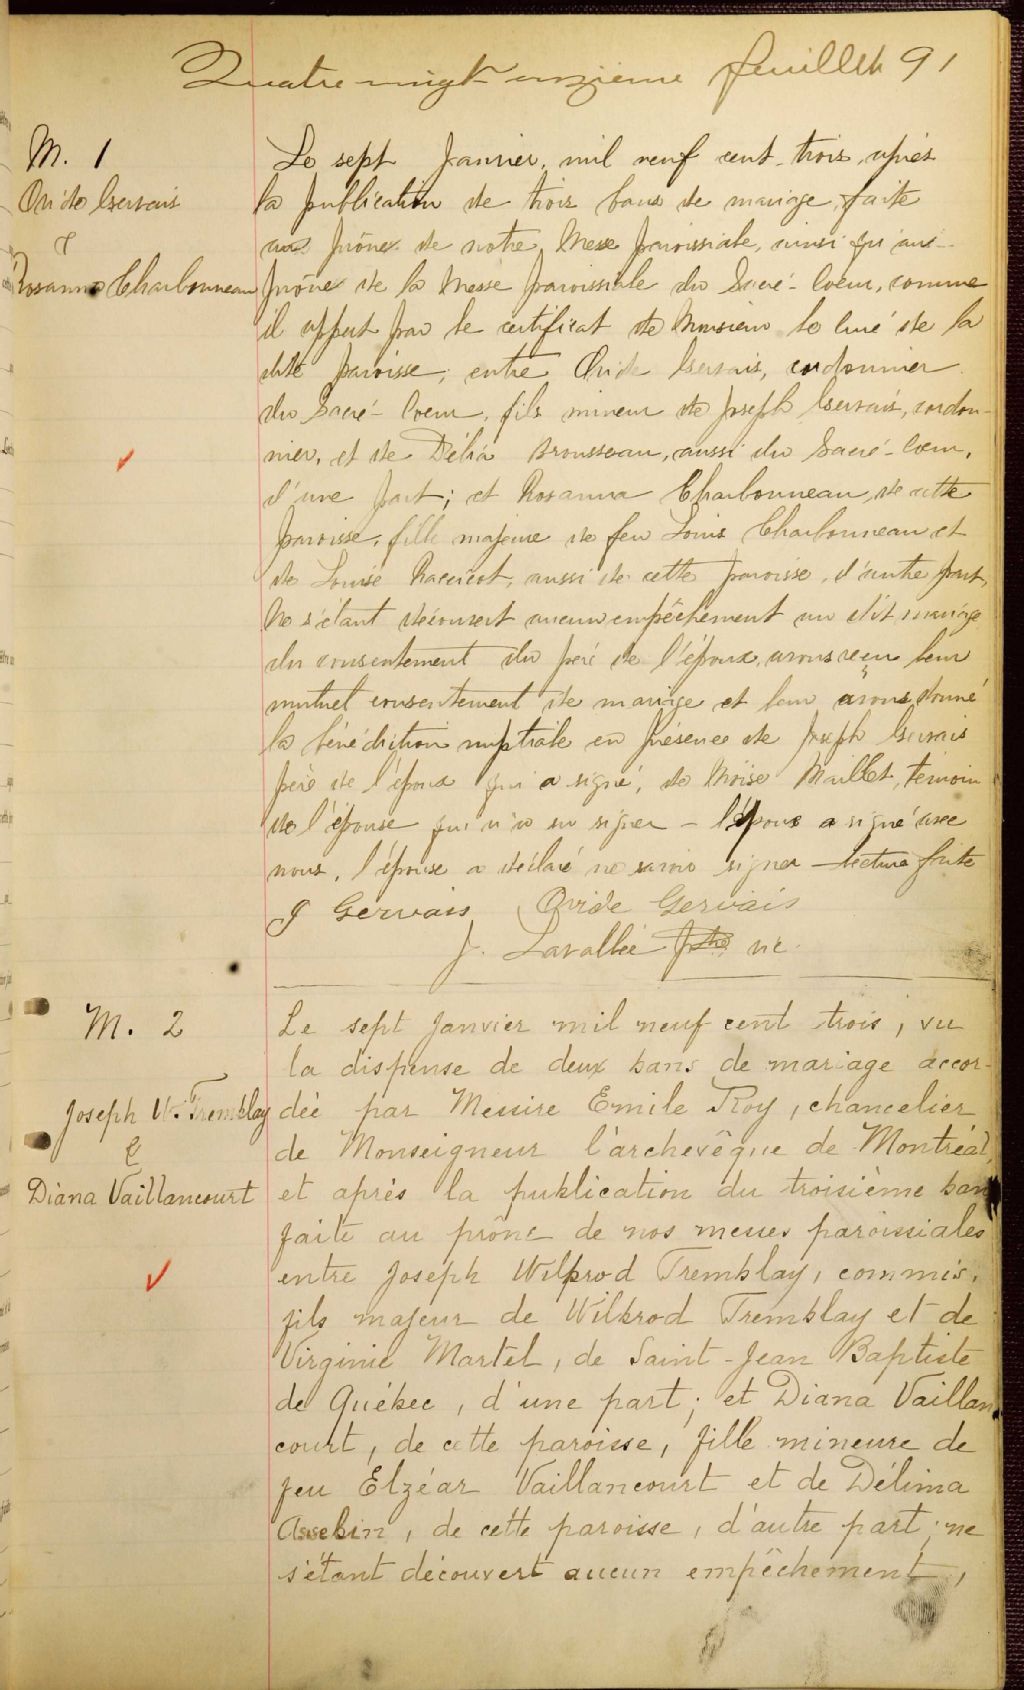 Quatre-vingt-onzième feuillet 91
M. 1
Ovide Gervais
&
Rosanna Charbonneau
Le sept Janvier, mil neuf cent trois, après
la publication de trois bans de mariage, faite
aux prônes de notre Messe paroissiale, ainsi qu'aux
prône de la Messe paroissiale du Sacré-Coeur, comme
il appert par le certificat de Monsieur le Curé de la
dite paroisse; entre Ovide Gervais, cordonnier
du Sacré-Coeur, fils mineur de Joseph Gervais, cordon-
nier, et de Délia Brousseau, aussi du Sacré-Coeur,
d'une part; et Rosanna Charbonneau, de cette
paroisse, fille majeure de feu Louis Charbonneau et
de Louise Racicot, aussi de cette paroisse, d'autre part,
Ne s'étant découvert aucun empêchement au dit mariage
du consentement du père de l'époux, avons reçu leur
mutuel consentement de mariage et leur avons donné
la bénédiction nuptiale en présence de Joseph Gervais
père de l'époux qui a signé, de Moïse Maillet, témoin
de l'épouse qui n'a su signer - l'époux a signé avec
nous, l'épouse a déclaré ne savoir signer - lecture faite
J Gervais Ovide Gervais
J. Lavallée Ptre vic.
M. 2
Joseph W. Tremblay
&
Diana Vaillancourt
Le sept Janvier mil neuf cent trois, vu
la dispense de deux bans de mariage accor-
dée par Messire Emile Roy, chancelier
de Monseigneur l'archevêque de Montréal,
et après la publication du troisième ban
faite au prône de nos messes paroissiales
entre Joseph Wilbrod Tremblay, commis,
fils majeur de Wilbrod Tremblay et de
Virginie Martel, de Saint-Jean Baptiste
de Québec, d'une part; et Diana Vaillan
court, de cette paroisse, fille mineure de
feu Elzéar Vaillancourt et de Délima
Asselin, de cette paroisse, d'autre part; ne
s'étant découvert aucun empêchement,